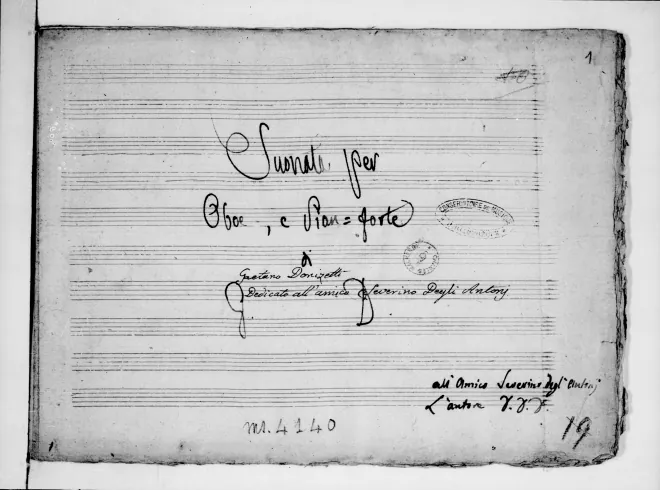 1
Suonata per
Oboe, e Pian=forte
CONSERVATOIRE DE MUSIQUE
di
Gaetano Donizetti
G D
Dedicato all'amico Severino Degli Antonj
all'Amico Severino degl'Antonj
L'autore
19
ms. 4140